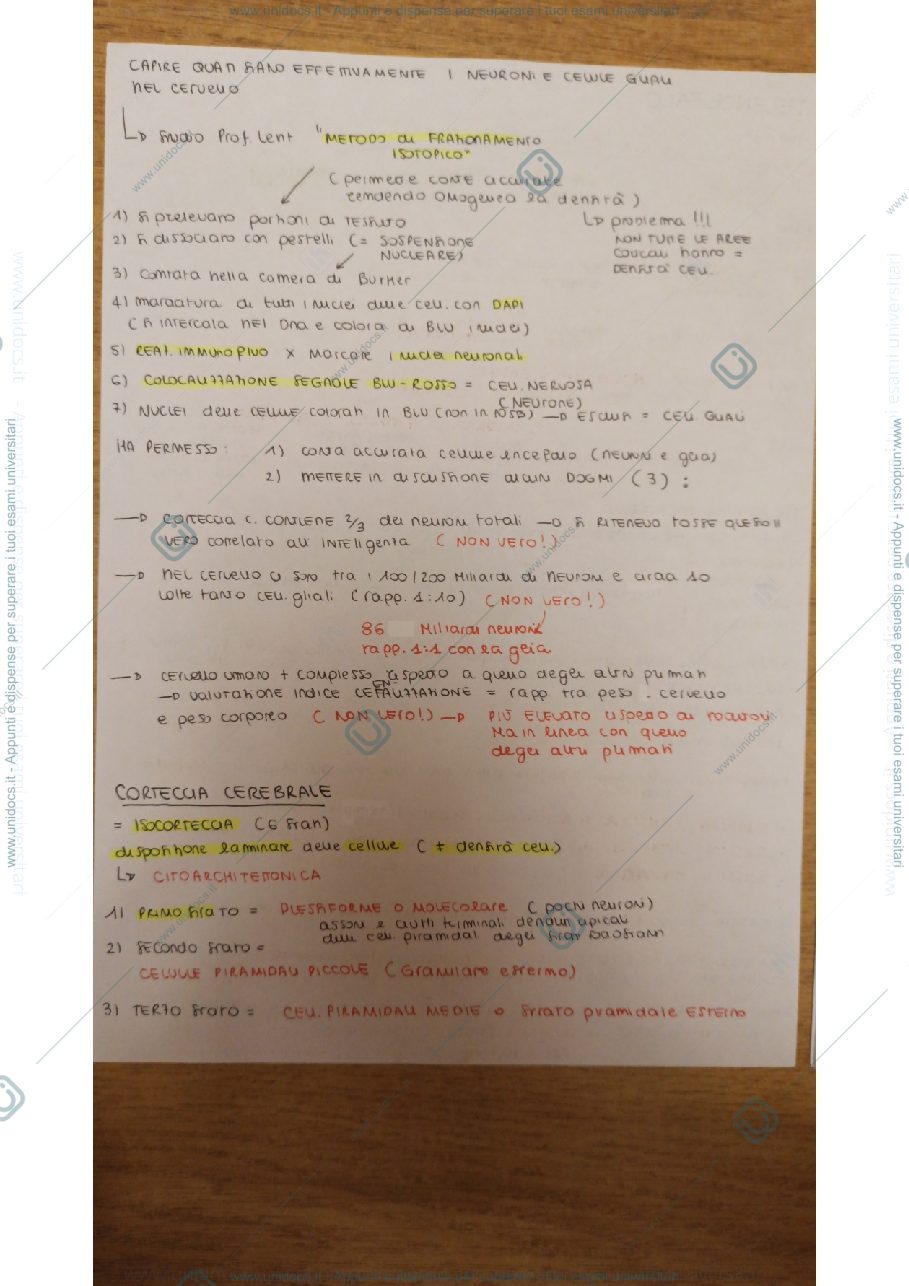 CAPIRE QUANTI SIANO EFFETTIVAMENTE I NEURONI E CELLULE GLIALI
NEL CERVELLO
↳ Studio Prof. Lent "METODO di FRAZIONAMENTO
ISOTOPICO"
(permette conte accurate
rendendo omogenea la densità)
↳ problema !!!
NON TUTTE LE AREE
cerebrali hanno =
DENSITÀ CELL.
1) Si prelevano porzioni di TESSUTO
2) Si dissociano con pestelli (= SOSPENSIONE
NUCLEARE)
3) Contata nella camera di Burker
4) marcatura di tutti i nuclei delle cell. con DAPI
(Si INTERCALA NEL DNA e colora di BLU i nuclei)
5) REAZ. IMMUNO FLUO x Marcare i nuclei neuronali
6) COLOCALIZZAZIONE SEGNALE BLU-ROSSO = CELL. NERVOSA
(NEURONE)
7) NUCLEI delle CELLULE colorati IN BLU (non in ROSSO) → ESCLUSI = CELL GLIALI
HA PERMESSO: 1) conta accurata cellule encefalo (neuroni e glia)
2) METTERE in discussione alcuni DOGMI (3) :
→ CORTECCIA C. CONTIENE 2/3 dei neuroni totali → SI RITENEVO FOSSE QUESTO IL
VERO correlato all' INTELligenza (NON VERO!)
→ NEL CERVELLO ci sono tra i 100/200 Miliardi di NEURONI e circa 10
volte tanto CELL. gliali (rapp. 1:10) (NON VERO!)
86 Miliardi neuroni
rapp. 1:1 con la glia
→ CERVELLO UMANO + complesso rispetto a quello degli altri primati
→ valutazione INDICE CEFALIZZAZIONE = rapp tra peso cervello
EN
e peso corporeo (NON VERO!) → PIÙ ELEVATO rispetto ai roditori
Ma in linea con quello
degli altri primati
CORTECCIA CEREBRALE
= ISOCORTECCIA (6 strati)
disposizione laminare delle cellule (± densità cell.)
↳ CITOARCHITETTONICA
1) PRIMO STRATO = PLESSIFORME O MOLECOLARE (pochi neuroni)
assoni e ciuffi terminali dendriti apicali
delle cell. piramidali degli strati sottostanti
2) SECONDO Strato =
CELLULE PIRAMIDALI PICCOLE (Granulare esterno)
3) TERZO Strato = CELL. PIRAMIDALI MEDIE o strato piramidale ESTERNO
www.unidocs.it - Appunti e dispense per superare i tuoi esami universitari